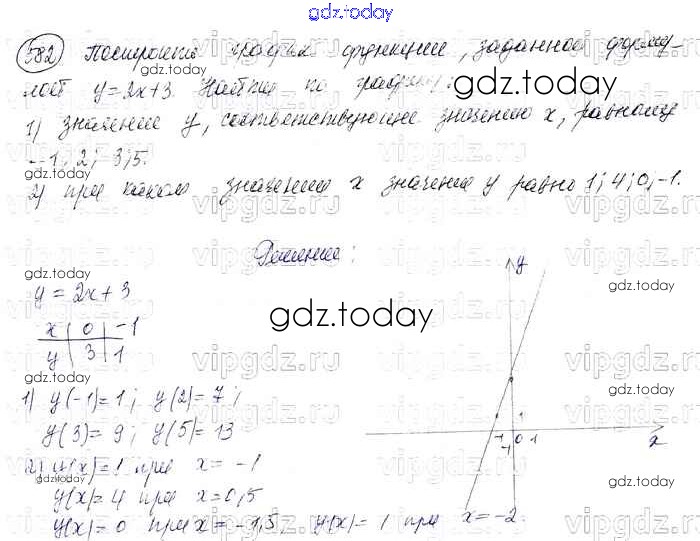 gdz.today
582 Построить график функции, заданной форму-
лой y=2x+3. Найти по графику:
1) значение y, соответствующее значению x, равному
-1; 2; 3; 5.
2) при каком значении x значение y равно 1; 4; 0; -1.
Решение:
y = 2x + 3
x | 0 | -1
y | 3 | 1
1) y(-1)=1; y(2)=7;
y(3)=9; y(5)=13
2) y(x)=1 при x=-1
y(x)=4 при x=0,5
y(x)=0 при x=-1,5, y(x)=1 при x=-2.
y
1
-1 0 1
-1
x
gdz.today
gdz.today
gdz.today
gdz.today
gdz.today
gdz.today
gdz.today
gdz.today
gdz.today
vipgdz.ru